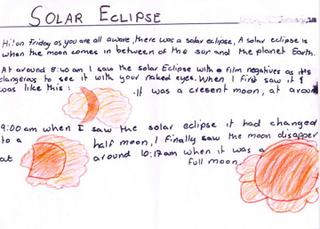 SOLAR ECLIPSE
Hi! on Friday as you are all aware, there was a solar eclipse, A solar eclipse is
when the moon comes in between of the sor and the planet Earth.
At around 8:40 am I saw the solar Eclipse with a film negatives as it's
dangerous to see it with your naked eyes. When I first saw it
was like this: It was a cresent moon, at around
9:00 am when I saw the solar eclipse it had changed
to a half moon, I finally saw the moon disapper
at around 10:17am when it was a
full moon